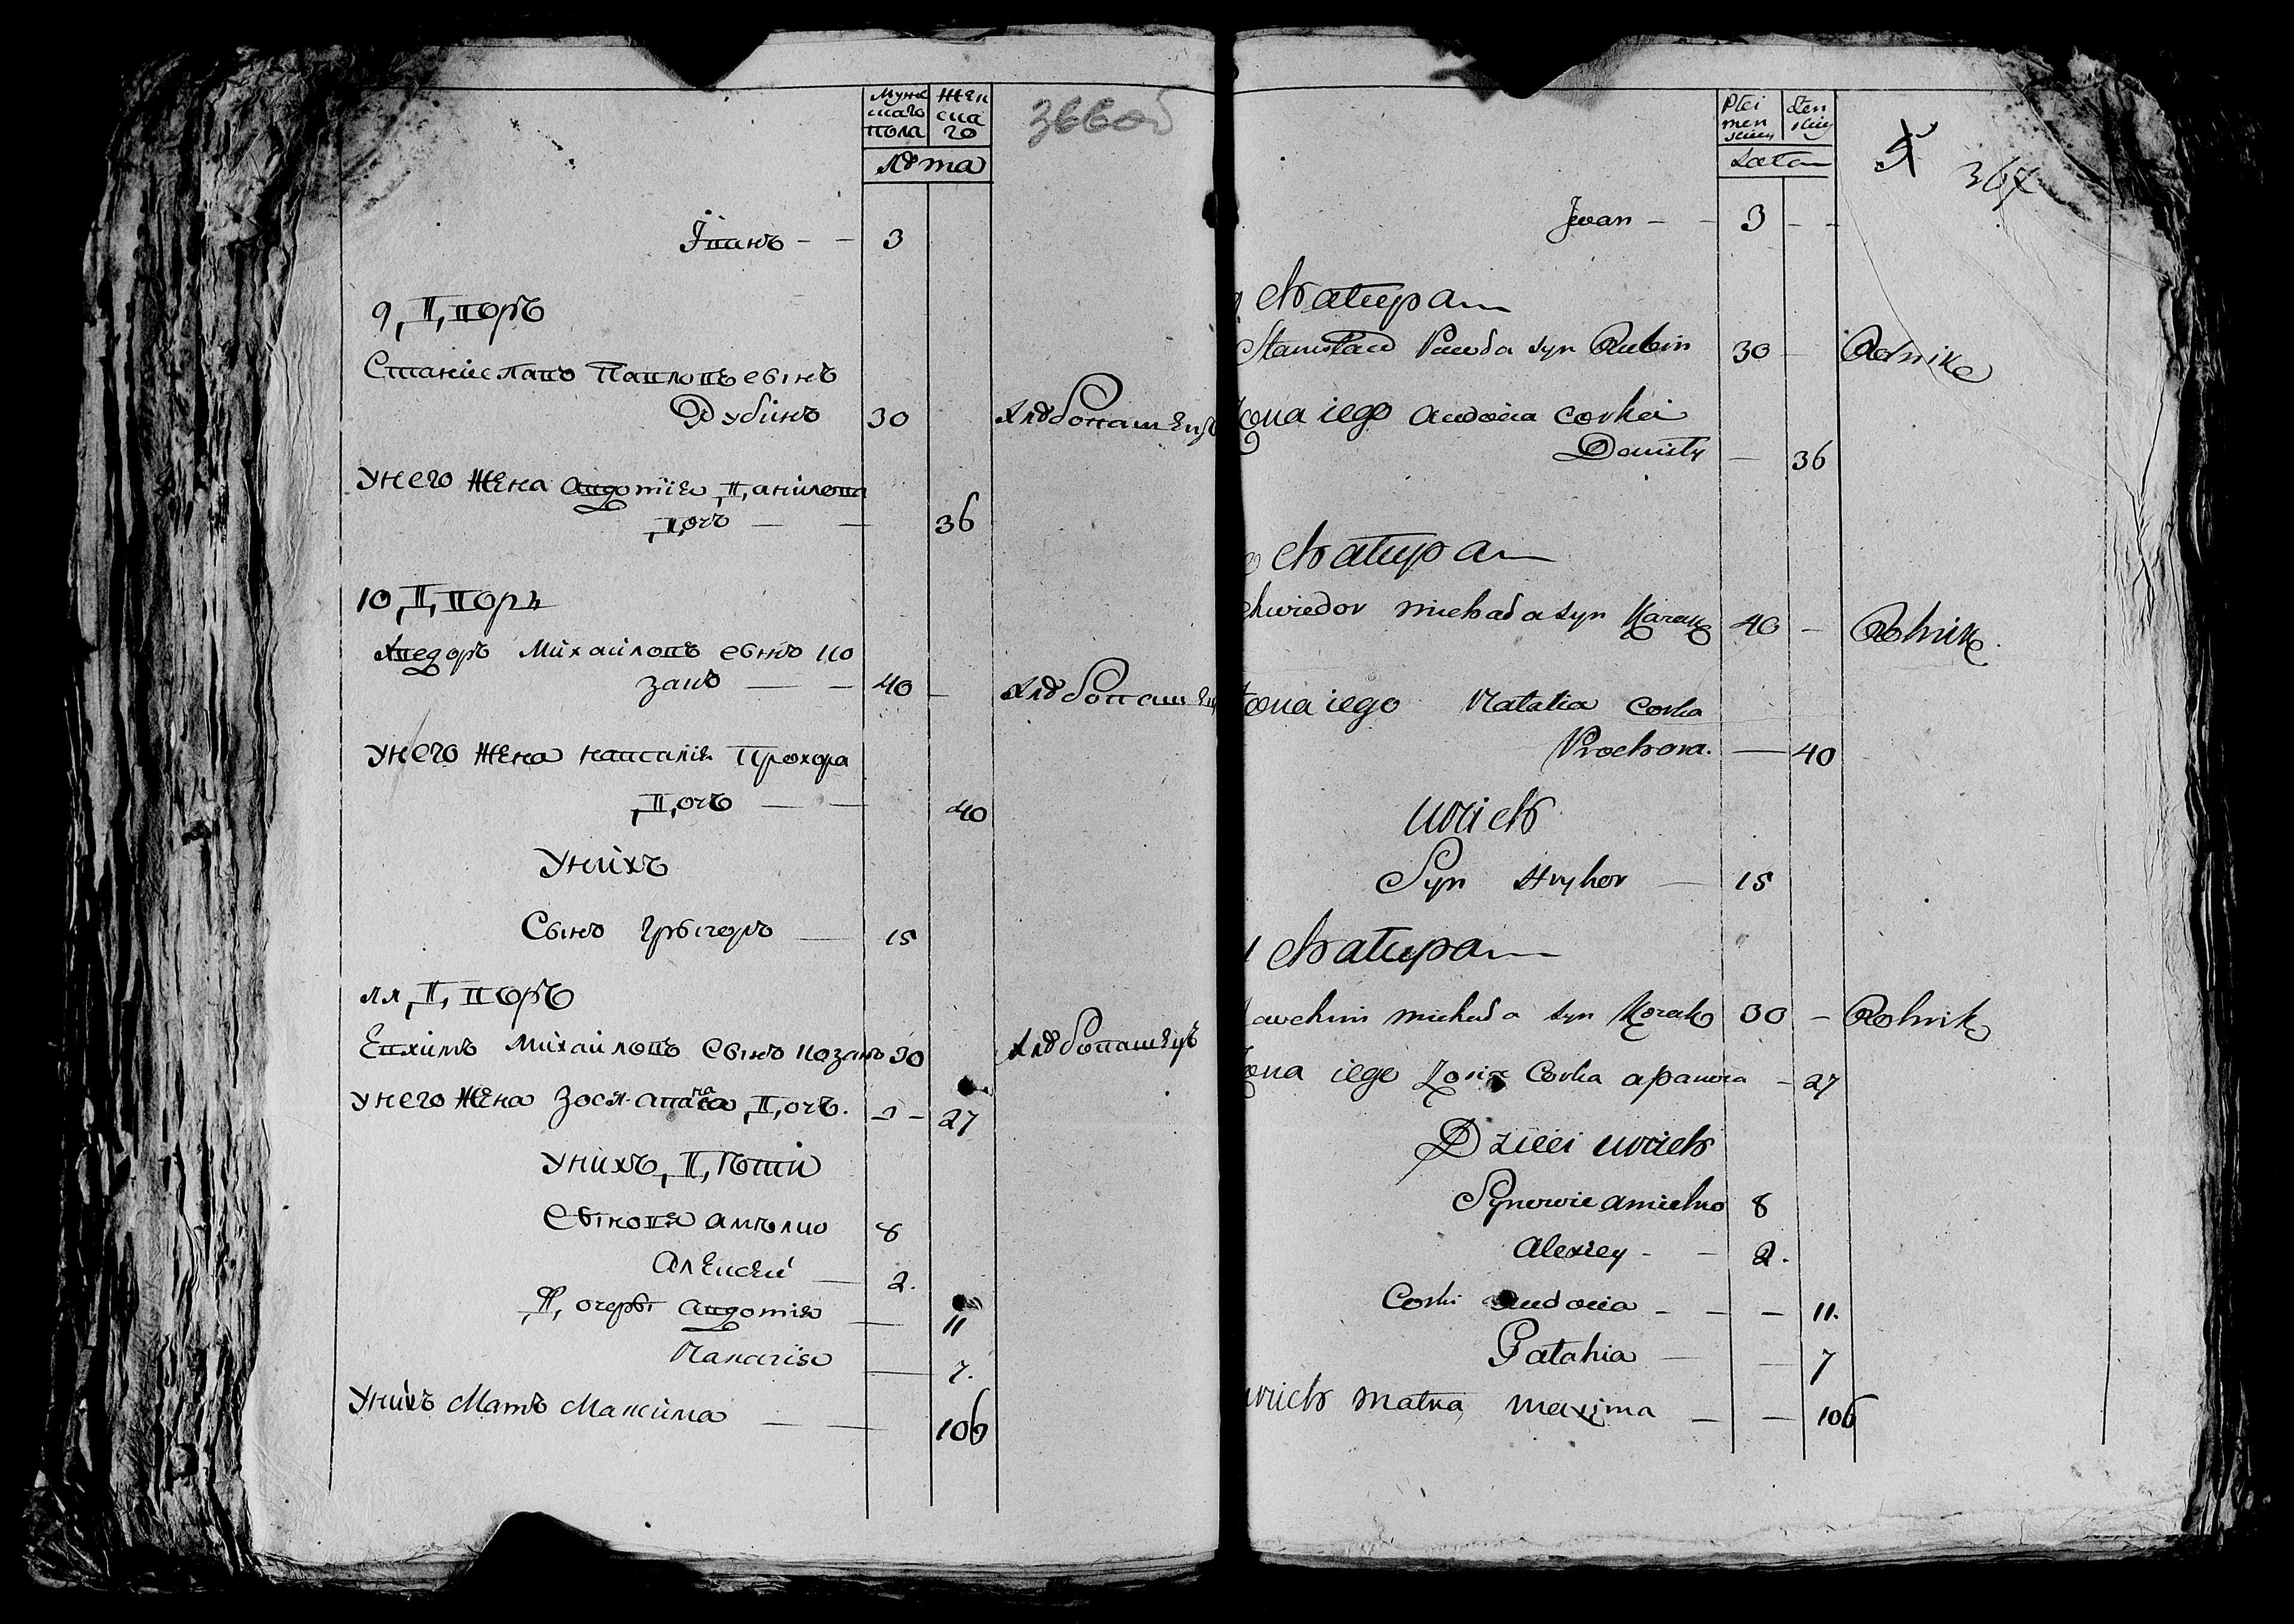 Мужескаго пола
Женскаго
366об
Лѣта
Іванъ — — 3
9 Дворъ
Станіславъ Павловъ сынъ
Дубінъ 30 Хлѣбопашецъ
Унего жена Авдотія Данілова
дочь — — 36
10 Дворъ
Хведоръ Михаиловъ сынъ Ко
закъ — — 40 — Хлѣбопашец
Унего жена Наталія Прохора
дочь — — 40
Унихъ
Сынъ Грыгоръ — 15
11 Дворъ
Евхимъ Михаиловъ сынъ Козакъ 30 Хлѣбопашецъ
Унего жена Зося Апанаса дочь. — — 27
Унихъ Дѣти
Сыновя Амѣлко 8
Алексей — 2.
Дочеры Авдотія — 11
— 7.
Унихъ Мать Максима — — 106
Płci menskiey
żenskiey
367
Lata
Jwan — — 3 — —
Chatupa
Stanisław Pawła syn Dubin 30 — Rolnik
żona iego Audocia corka
Daniły — 36
Chatupa
Chwiedor Michała syn Kozak 40 — Rolnik.
żona iego Natalia Corka
Prochora. — 40
Unich
Syn Hryhor — 15
Chatupa
Jauchim Michała syn Kozak 30 — Rolnik
żona iego Zosia Corka apanasa — 27
Dzieci unich
Synowie amielko 8
Alexiey — — 2.
Corki Audocia — — — 11.
Patahia — — 7
unich matka maxima — — 106